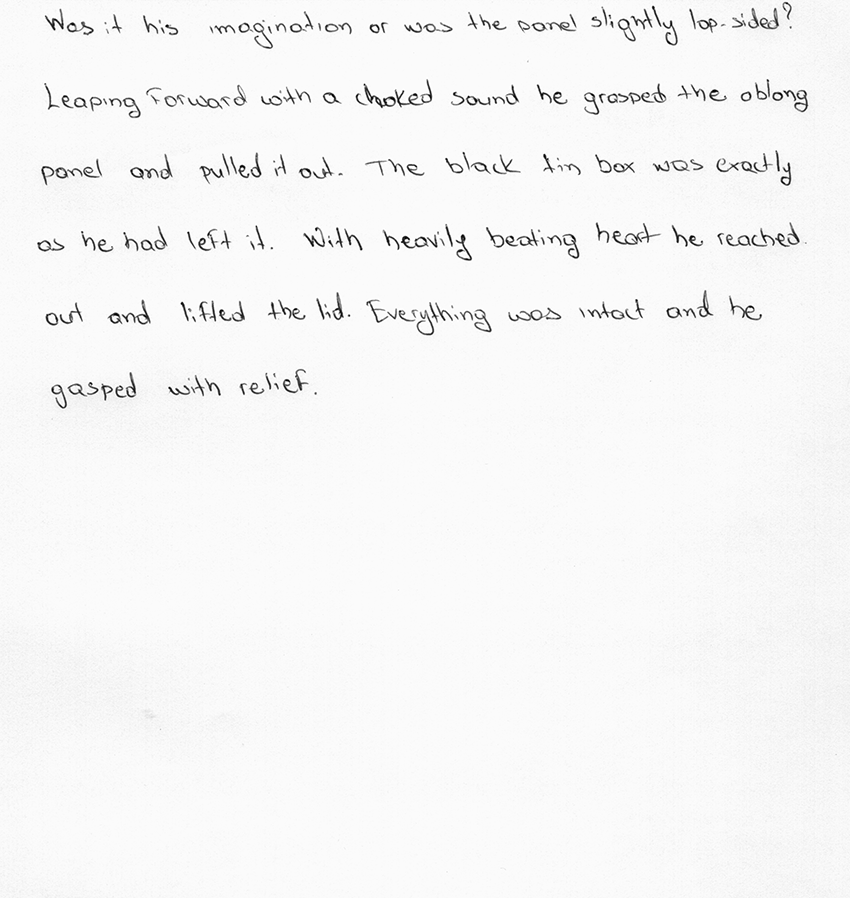 Was it his imagination or was the panel slightly lop-sided?
Leaping Forward with a choked sound he grasped the oblong
panel and pulled it out. The black tin box was exactly
as he had left it. With heavily beating heart he reached
out and lifted the lid. Everything was intact and he
gasped with relief.